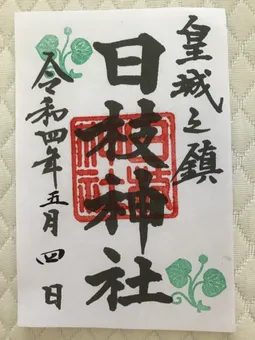 皇城之鎮
日枝神社
令和四年五月四日
日枝神社